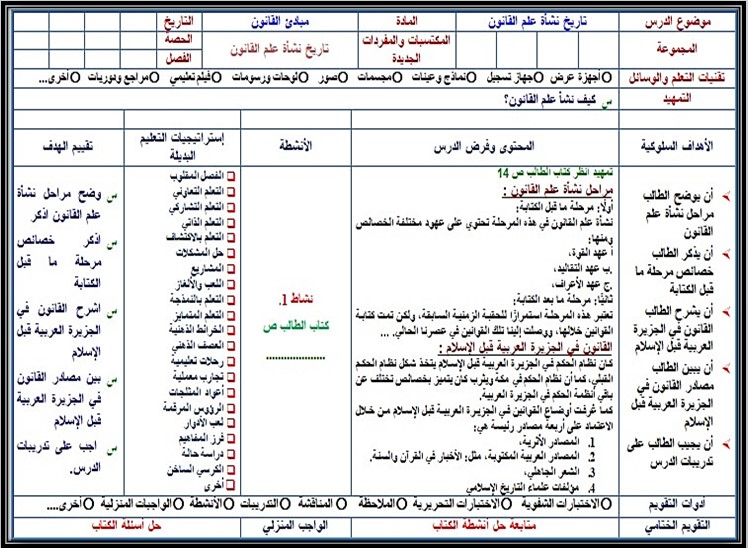 موضوع الدرس
تاريخ نشأة علم القانون
المادة
مبادئ القانون
التاريخ
المجموعة
المكتسبات والمفردات الجديدة
تاريخ نشأة علم القانون
الحصة
الفصل
تقنيات التعلم والوسائل
Oأجهزة عرض Oجهاز تسجيل Oنماذج وعينات Oمجسمات Oصور Oلوحات ورسومات Oفيلم تعليمي Oمراجع ودوريات Oأخرى...
التمهيد
س كيف نشأ علم القانون؟
الأهداف السلوكية
المحتوى وفرض الدرس
الأنشطة
إستراتيجيات التعليم البديلة
تقييم الهدف
أن يوضح الطالب
مراحل نشأة علم
القانون
أن يذكر الطالب
خصائص مرحلة ما
قبل الكتابة
أن يشرح الطالب
القانون في الجزيرة
العربية قبل الإسلام
أن يبين الطالب
مصادر القانون في
الجزيرة العربية قبل
الإسلام
أن يجيب الطالب على
تدريبات الدرس
تمهيد انظر كتاب الطالب ص 14
مراحل نشأة علم القانون :
أولًا: مرحلة ما قبل الكتابة:
نشأة علم القانون في هذه المرحلة تحتوي على عهود مختلفة الخصائص
ومنها:
أ عهد القوة،
.ب عهد التقاليد،
.ج عهد الأعراف،
ثانيًا: مرحلة ما بعد الكتابة:
تعتبر هذه المرحلة استمرارًا للحقبة الزمنية السابقة، ولكن تمت كتابة
القوانين خلالها، ووصلت إلينا تلك القوانين في عصرنا الحالي. ...
القانون في الجزيرة العربية قبل الإسلام :
كان نظام الحكم في الجزيرة العربية قبل الإسلام يتخذ شكل نظام الحكم
القبلي، كما أن نظام الحكم في مكة ويثرب كان يتميز بخصائص تختلف عن
باقي أنظمة الحكم في الجزيرة العربية.
كما عُرفت أوضاع القوانين في الجزيرة العربية قبل الإسلام من خلال
الاعتماد على أربعة مصادر رئيسة هي:
1. المصادر الأثرية،
2. المصادر العربية المكتوبة، مثل: الأخبار في القرآن والسنة.
3. الشعر الجاهلي،
4. مؤلفات علماء التاريخ الإسلامي
نشاط 1.
كتاب الطالب ص
....................
الفصل المقلوب
التعلم التعاوني
التعلم التشاركي
التعلم الذاتي
التعلم بالاكتشاف
حل المشكلات
المشاريع
اللعب والألغاز
التعلم بالنمذجة
التعلم المتمايز
الخرائط الذهنية
العصف الذهني
رحلات تعليمية
تجارب معملية
أعواد المثلجات
الرؤوس المرقمة
لعب الأدوار
فرز المفاهيم
دراسة حالة
الكرسي الساخن
أخرى
س وضح مراحل نشأة
علم القانون اذكر
س اذكر خصائص
مرحلة ما قبل
الكتابة
س اشرح القانون في
الجزيرة العربية قبل
الإسلام
س بين مصادر القانون
في الجزيرة العربية
قبل الإسلام
س اجب على تدريبات
الدرس.
أدوات التقويم
Oالاختبارات الشفوية Oالاختبارات التحريرية Oالملاحظة Oالمناقشة Oالتدريبات Oالأنشطة Oالواجبات المنزلية Oأخرى....
التقويم الختامي
متابعة حل أنشطة الكتاب
الواجب المنزلي
حل أسئلة الكتاب